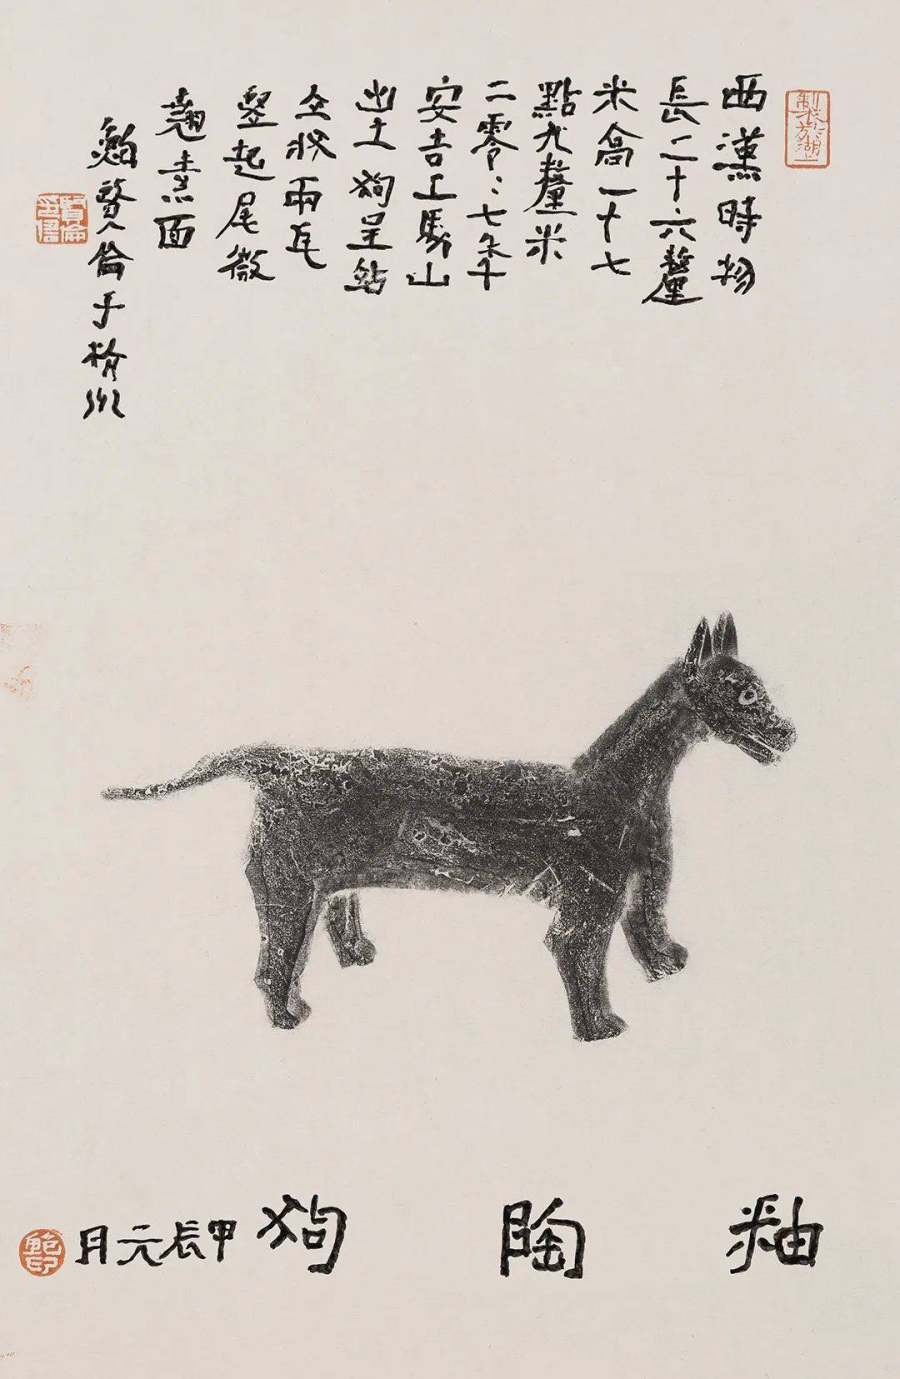 西漢時物
長二十六釐
米高一十七
點九釐米
二零〻七年于
安吉上馬山
出土狗呈站
立狀兩耳
竪起尾微
翹素面
鮑賢倫于杭州
賢倫印信
釉陶狗
甲辰元月
鮑印